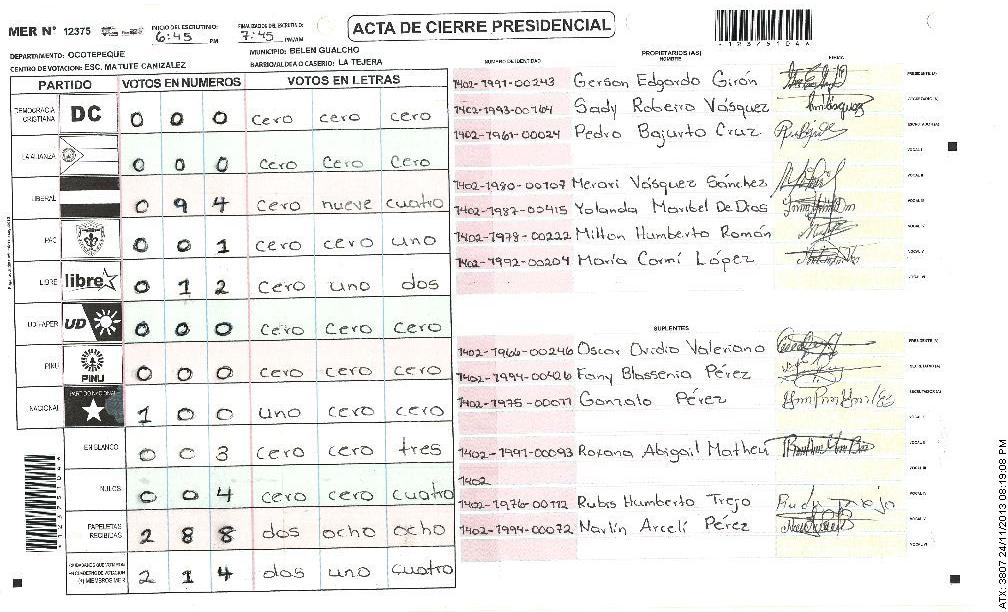 MER N° 12375
INICIO DEL ESCRUTINIO: 6:45 PM
FINALIZACION DEL ESCRUTINIO: 7:45 PM/AM
ACTA DE CIERRE PRESIDENCIAL
DEPARTAMENTO: OCOTEPEQUE
MUNICIPIO: BELEN GUALCHO
CENTRO DE VOTACION: ESC. MATUTE CANIZALEZ
BARRIO/ALDEA O CASERIO: LA TEJERA
PARTIDO VOTOS EN NUMEROS VOTOS EN LETRAS
DEMOCRACIA CRISTIANA DC 0 0 0 cero cero cero
LA ALIANZA 0 0 0 cero cero cero
LIBERAL 0 9 4 cero nueve cuatro
PAC 0 0 1 cero cero uno
LIBRE libre 0 1 2 cero uno dos
UD-FAPER UD 0 0 0 cero cero cero
PINU PINU 0 0 0 cero cero cero
NACIONAL PARTIDO NACIONAL 1 0 0 uno cero cero
EN BLANCO 0 0 3 cero cero tres
NULOS 0 0 4 cero cero cuatro
PAPELETAS RECIBIDAS 2 8 8 dos ocho ocho
CIUDADANOS QUE VOTARON EN CUADERNO DE VOTACION (+) MIEMBROS MER 2 1 4 dos uno cuatro
PROPIETARIOS (AS)
NUMERO DE IDENTIDAD NOMBRE FIRMA
1402-1991-00243 Gerson Edgardo Girón PRESIDENTE (A)
1402-1993-00164 Sady Robeiro Vásquez SECRETARIO (A)
1402-1961-00024 Pedro Bajurto Cruz ESCRUTADOR (A)
VOCAL I
1402-1980-00107 Merari Vásquez Sánchez VOCAL II
1402-1987-00415 Yolanda Maribel De Dios VOCAL III
1402-1978-00222 Milton Humberto Román VOCAL IV
1402-1992-00204 María Carmí López VOCAL V
VOCAL VI
SUPLENTES
1402-1966-00246 Oscar Ovidio Valeriano PRESIDENTE (A)
1402-1994-00426 Fany Blassenia Pérez SECRETARIO (A)
1402-1975-00071 Gonzalo Pérez
VOCAL I
1402-1991-00093 Roxana Abigail Matheu VOCAL II
1402 VOCAL III
1402-1976-00112 Rubis Humberto Trejo VOCAL IV
1402-1994-00072 Narlin Arcelí Pérez VOCAL V
VOCAL VI
ATX: 3807 24/11/2013 08:19:08 PM